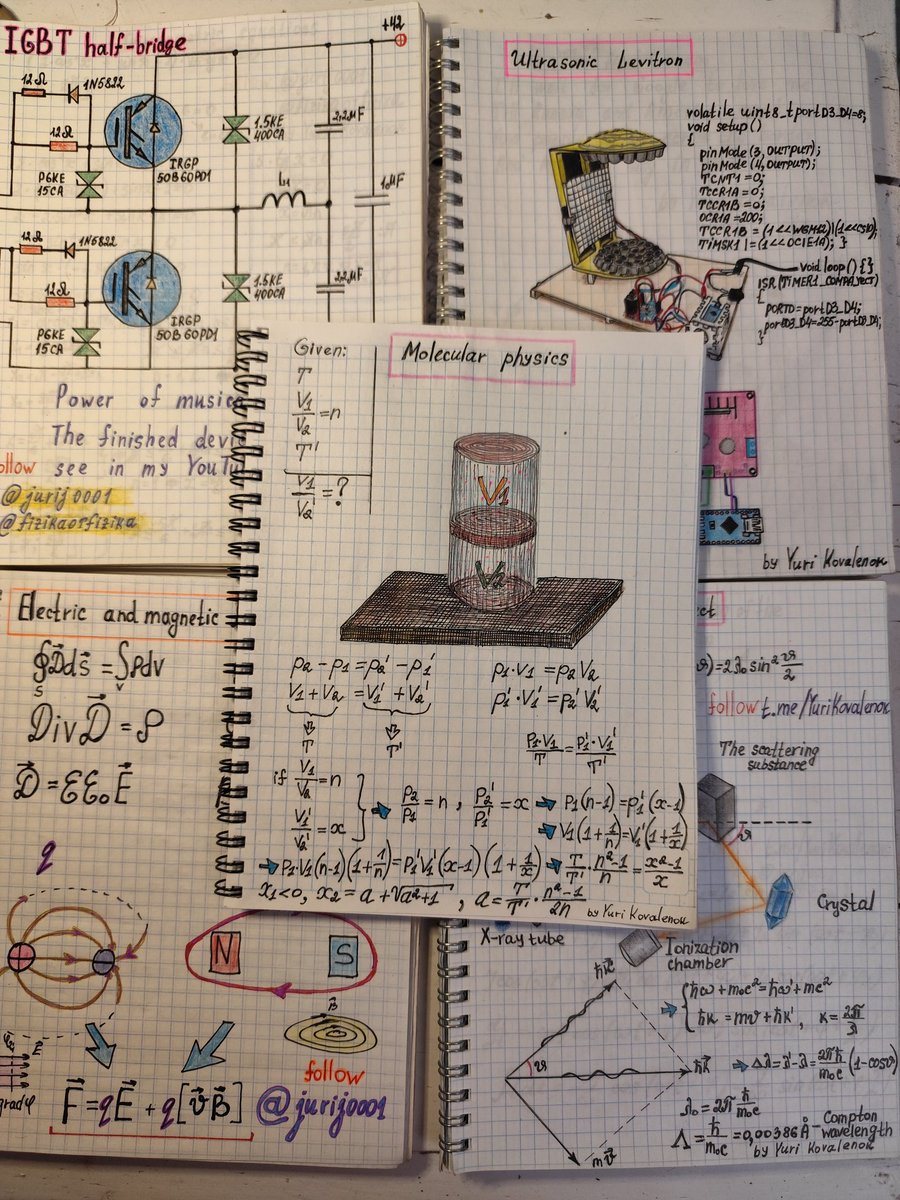 IGBT half-bridge
+42
12Ω
1N5822
12Ω
P6KE
15CA
IRGP
50B60PD1
1.5KE
400CA
2,2μF
L1
1μF
12Ω
1N5822
12Ω
P6KE
15CA
IRGP
50B60PD1
1.5KE
400CA
2,2μF
Power of music
The finished
see in my
@jurij0001
@fizikaorfizika
Ultrasonic Levitron
volatile uint8_t portD3_D4=8;
void setup()
{
pinMode(3,OUTPUT);
pinMode(4,OUTPUT);
TCNT1=0;
TCCR1A=0;
TCCR1B=0;
OCR1A=200;
TCCR1B=(1<<WGM12)|(1<<CS10);
TIMSK1|=(1<<OCIE1A); }
void loop(){}
ISR(TIMER1_COMPA_vect)
{
PORTD=portD3_D4;
portD3_D4=255-portD3_D4;
}
by Yuri Kovalenok
Given:
T
V₁/V₂=n
T'
V₁'/V₂'=?
Molecular physics
V₁
V₂
p₂-p₁=p₂'-p₁'
V₁+V₂=V₁'+V₂'
T T'
p₁·V₁=p₂V₂
p₁'·V₁'=p₂'V₂'
p₁·V₁/T=p₁'·V₁'/T'
if V₁/V₂=n
V₁'/V₂'=x
p₂/p₁=n, p₂'/p₁'=x ⇒ p₁(n-1)=p₁'(x-1)
⇒ V₁(1+1/n)=V₁'(1+1/x)
⇒ p₁·V₁(n-1)(1+1/n)=p₁'V₁'(x-1)(1+1/x) ⇒ T/T'·n²-1/n=x²-1/x
x₁<0, x₂=a+√a²+1, a=T/T'·n²-1/2n
by Yuri Kovalenok
Electric and magnetic
∮Dds=∫ρdv
S V
DivD=ρ
D=εε₀E
q
N S
B
F=qE+q[vB]
follow
@jurij0001
=2λ₀sin²ϑ/2
follow t.me/YuriKovalenok
The scattering
substance
ϑ
Crystal
X-ray tube
Ionization
chamber
ħk'
ϑ
ħk
mv
ħω+m₀c²=ħω'+mc²
ħk=mv+ħk', k=2π/λ
⇒ Δλ=λ'-λ=2πħ/m₀c(1-cosϑ)
λ₀=2πħ/m₀c
Λ=ħ/m₀c=0,00386Å-Compton
wavelength
by Yuri Kovalenok